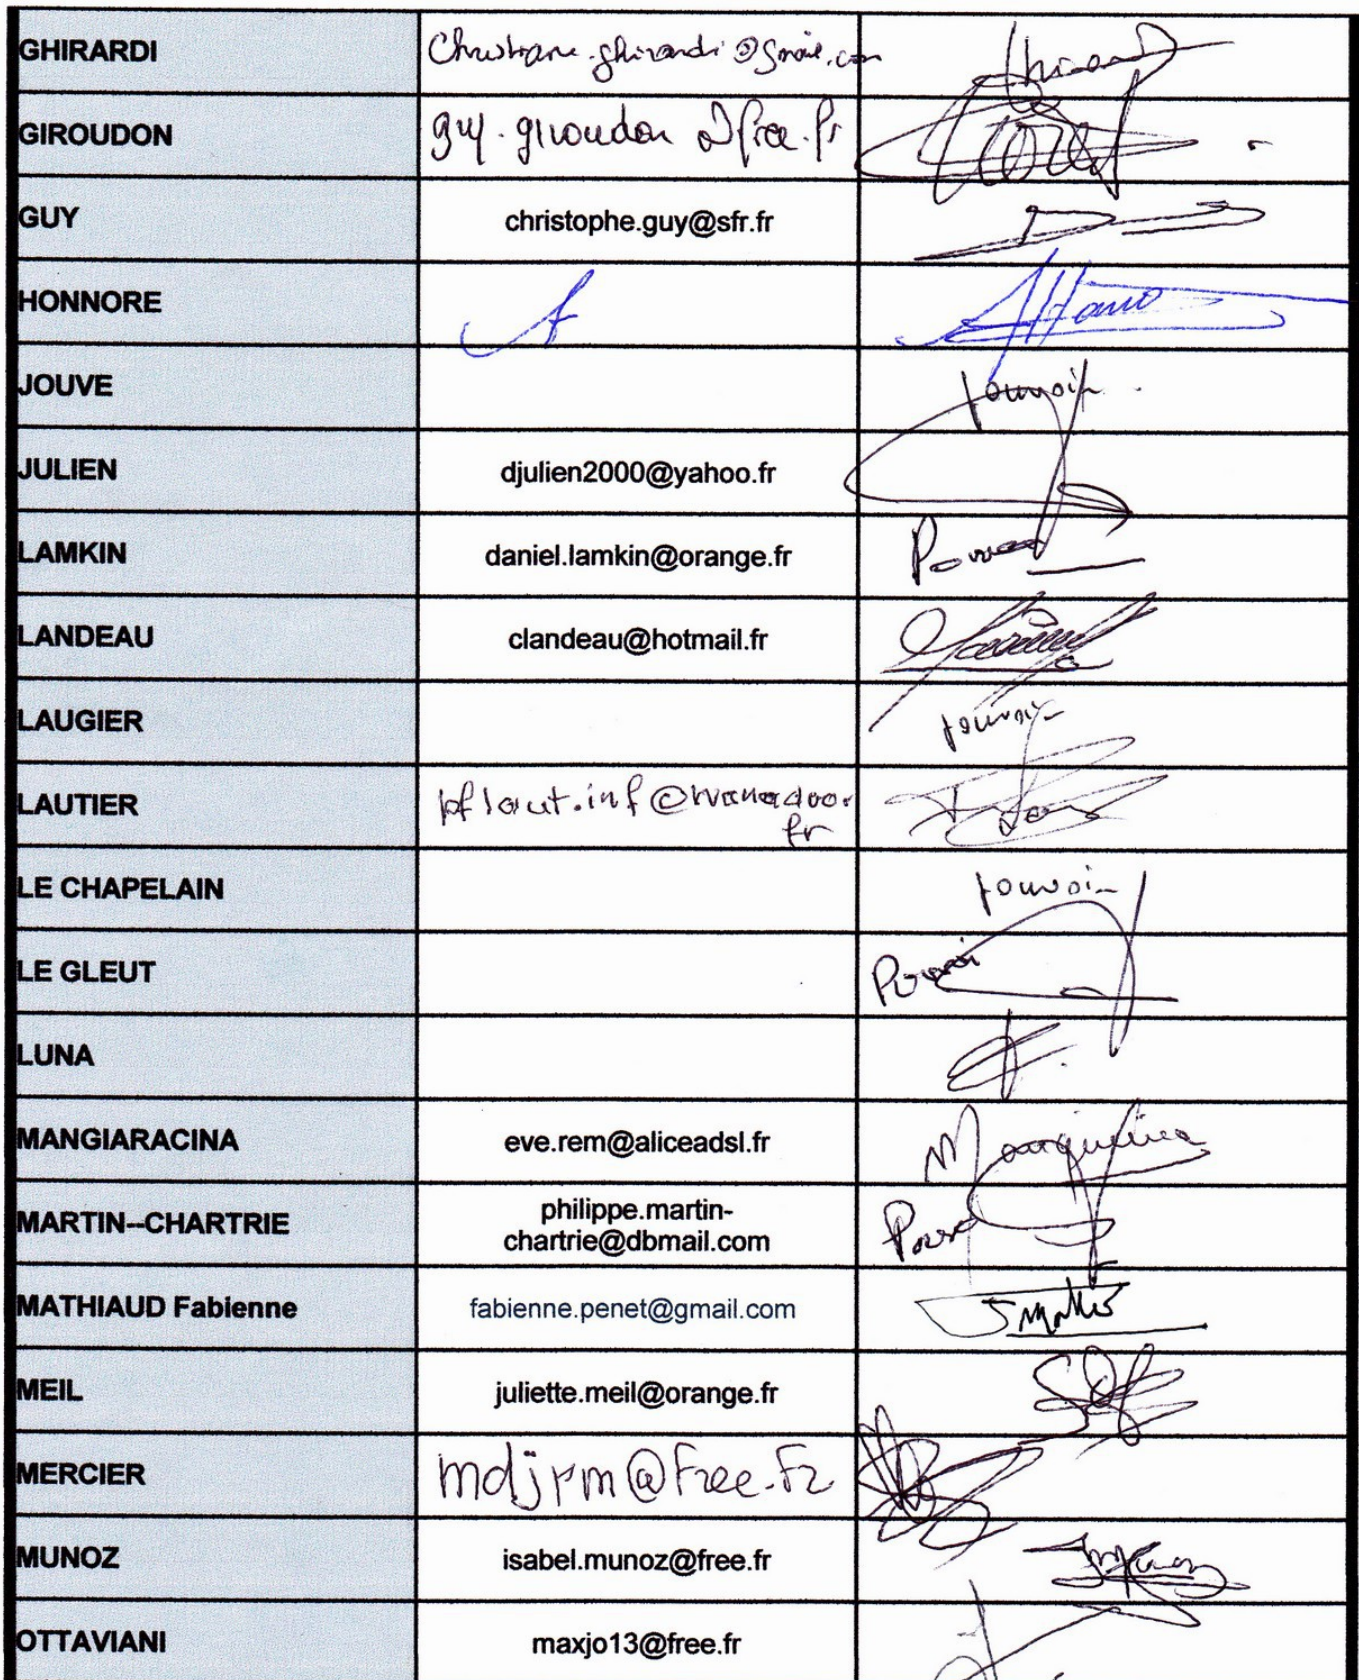 GHIRARDI Christiane.ghirardi@gmail.com
GIROUDON guy.giroudon@free.fr
GUY christophe.guy@sfr.fr
HONNORE
JOUVE pouvoir
JULIEN djulien2000@yahoo.fr
LAMKIN daniel.lamkin@orange.fr
LANDEAU clandeau@hotmail.fr
LAUGIER pouvoir
LAUTIER pflaut.inf@wanadoo.
fr
LE CHAPELAIN pouvoir
LE GLEUT
LUNA
MANGIARACINA eve.rem@aliceadsl.fr
MARTIN--CHARTRIE philippe.martin-
chartrie@dbmail.com
MATHIAUD Fabienne fabienne.penet@gmail.com
MEIL juliette.meil@orange.fr
MERCIER mdjrm@free.fr
MUNOZ isabel.munoz@free.fr
OTTAVIANI maxjo13@free.fr